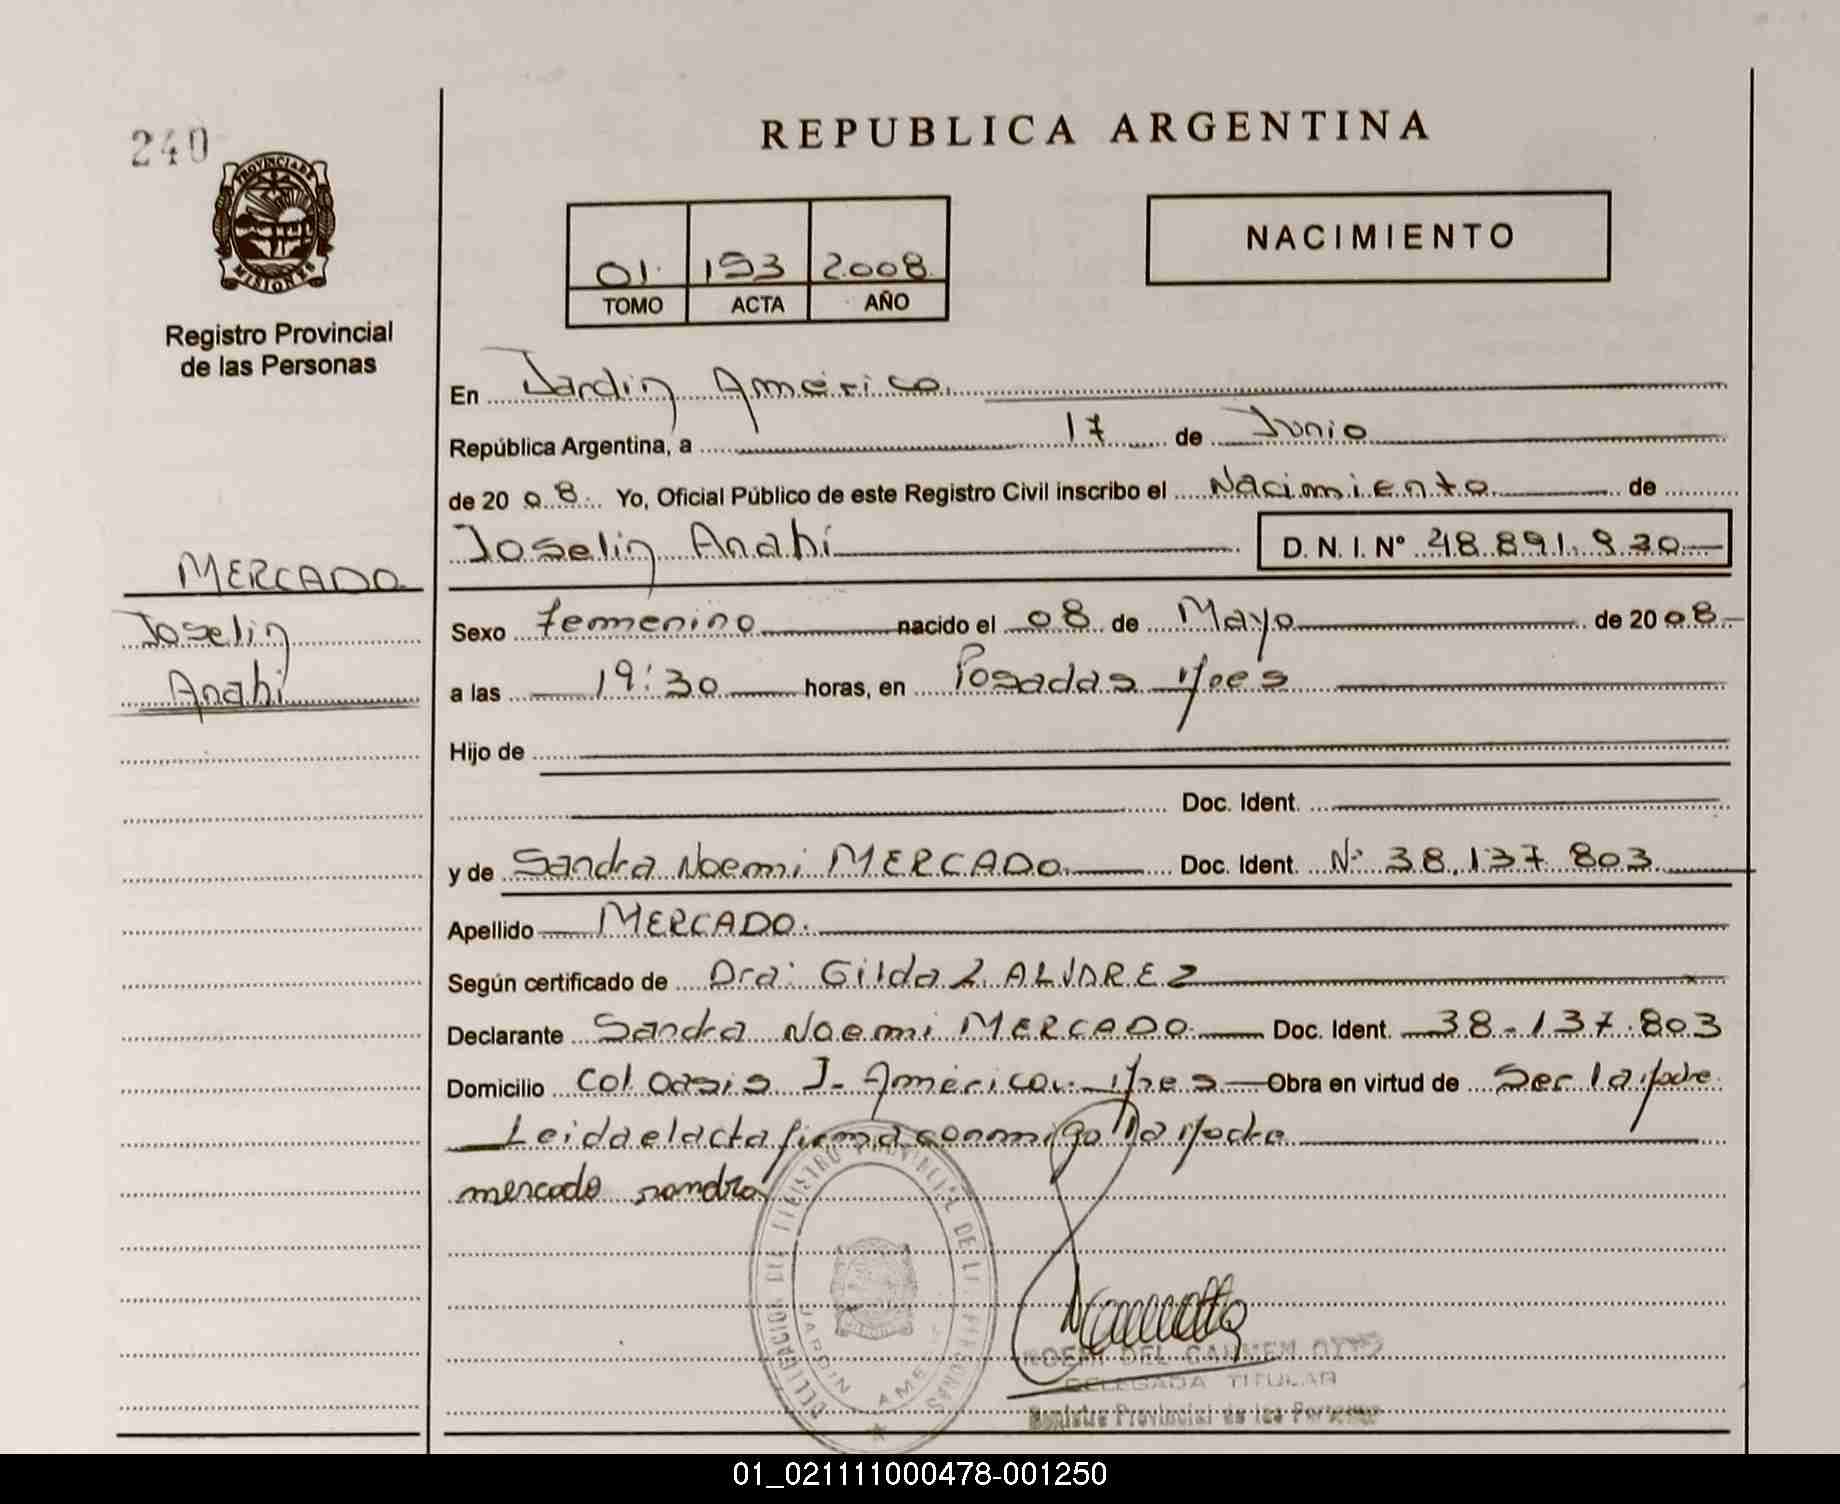 240
PROVINCIA DE
MISIONES
Registro Provincial
de las Personas
MERCADO
Joselin
Anahi
REPUBLICA ARGENTINA
01. 193 2008.
TOMO ACTA AÑO
NACIMIENTO
En Jardin América.
República Argentina, a 17 de Junio
de 2008. Yo, Oficial Público de este Registro Civil inscribo el Nacimiento de
Joselin Anahi D. N. I. Nº 48.891.930
Sexo femenino nacido el 08 de Mayo de 2008
a las 19:30 horas, en Posadas Mnes
Hijo de
Doc. Ident.
y de Sandra Noemi MERCADO Doc. Ident. Nº 38.137.803
Apellido MERCADO.
Según certificado de Dra: Gilda L. ALVAREZ
Declarante Sandra Noemi MERCADO Doc. Ident. 38.137.803
Domicilio Col. Oasis J. América. Mnes Obra en virtud de Ser la Madre
Leida el acta firma conmigo la Madre
mercado sandra
DELEGACION DEL REGISTRO PROVINCIAL DE LAS PERSONAS
JARDIN AME
NOEMI DEL CARMEN
DELEGADA TITULAR
Registro Provincial de las Personas
01_021111000478-001250